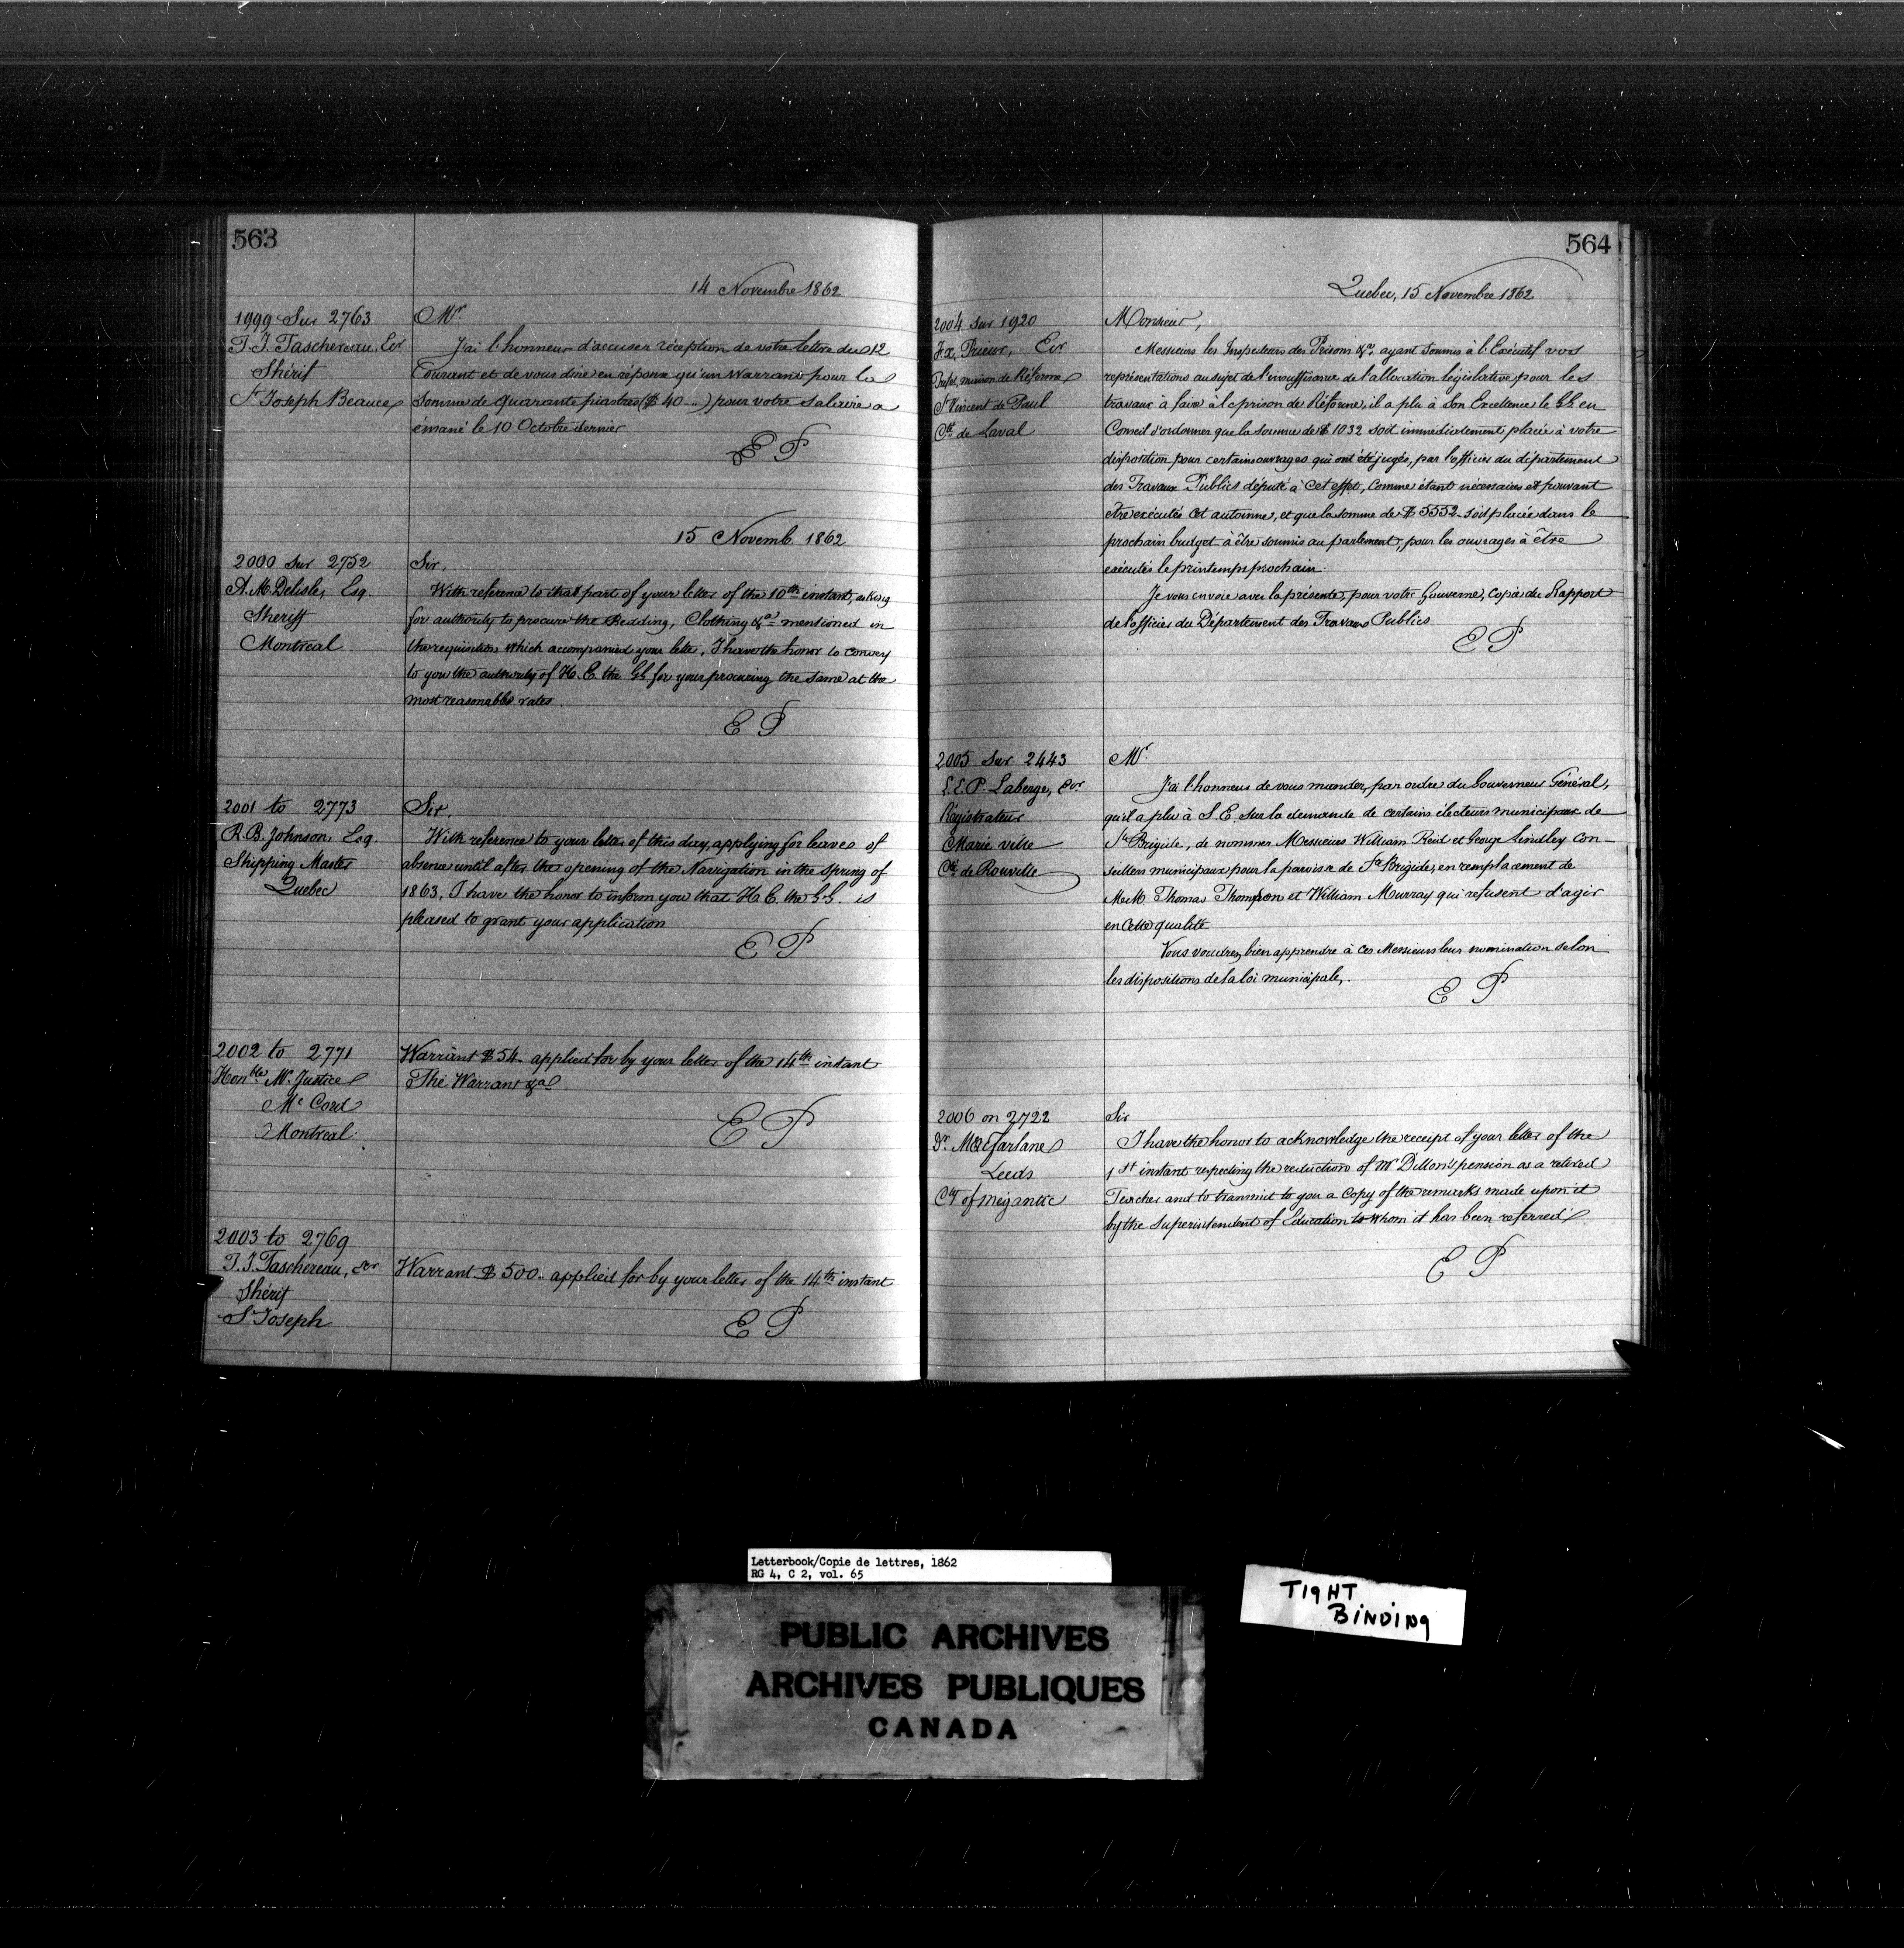 563
14 Novembre 1862
1999 Sur 2763
T. J. Taschereau, Ecr
Shérif
St Joseph Beauce
Mr.
J'ai l'honneur d'accuser réception de votre lettre du 12
Courant et de vous dire en réponse qu'un Warrant pour la
Somme de Quarante piastres ($ 40...) pour votre Salaire a
émané le 10 Octobre dernier
E P
15 Novemb. 1862
2000 Sur 2752
A. M. Delisle, Esq.
Sheriff
Montreal
Sir,
With reference to that part of your letter of the 10th instant, asking
for authority to procure the Bedding, Clothing &a mentioned in
the requisition which accompanied your letter, I have the honor to convey
to you the authority of H. E. the G.G. for your procuring the same at the
most reasonable rates.
E P
2001 to 2773
R. B. Johnson, Esq.
Shipping Master
Quebec
Sir.
With reference to your letter of this day, applying for leave of
absence until after the opening of the Navigation in the Spring of
1863, I have the honor to inform you that H. E. the G.G. is
pleased to grant your application
E P
2002 to 2771
Honble Mr. Justice
Mc Cord
Montreal
Warrant $ 54 applied for by your letter of the 14th instant
The Warrant &a
E P
2003 to 2769
T. J. Taschereau, Ecr
Shérif
St Joseph
Warrant $ 500.. applied for by your letter of the 14th instant
E P
564
Quebec, 15 Novembre 1862
2004 sur 1920
F. X. Prieur, Ecr
Préfet, maison de Réforme
St Vincent de Paul
Cté de Laval
Monsieur,
Messieurs les Inspecteurs des Prisons &a, ayant soumis à l'Exécutif vos
représentations au sujet de l'insuffisance de l'allocation législative pour les
travaux à faire à la prison de Réforme, il a plu à Son Excellence le G.G. en
Conseil d'ordonner que la somme de $ 1032 soit immédiatement placée à votre
disposition pour certains ouvrages qui ont été jugés, par l'officier du département
des Travaux Publics député à cet effet, comme étant nécessaires et pouvant
être exécutés cet automne, et que la somme de $ 5552 soit placée dans le
prochain budget à être soumis au parlement, pour les ouvrages à être
exécutés le printemps prochain.
Je vous envoie avec la présente, pour votre Gouverne, Copie du Rapport
de l'officier du Département des Travaux Publics
E P
2005 Sur 2443
L. E. P. Laberge, Ecr
Régistrateur
Marie ville
Cté de Rouville
Mr.
J'ai l'honneur de vous mander, par ordre du Gouverneur Général,
qu'il a plu à S. E. sur la demande de certains électeurs municipaux de
Ste Brigide, de nommer Messieurs William Reid et George Lindley Con-
seillers municipaux pour la paroisse de Ste Brigide, en remplacement de
MM. Thomas Thompson et William Murray qui refusent d'agir
en cette qualité
Vous voudrez bien apprendre à ces Messieurs leur nomination selon
les dispositions de la loi municipale.
E P
2006 on 2722
Dr. McFarlane
Leeds
Cty of Megantic
Sir
I have the honor to acknowledge the receipt of your letter of the
1st instant respecting the reduction of Mr Dillon's pension as a retired
Teacher and to transmit to you a Copy of the remarks made upon it
by the Superintendent of Education to whom it has been referred.
E P
Letterbook/Copie de lettres, 1862
RG 4, C 2, vol. 65
PUBLIC ARCHIVES
ARCHIVES PUBLIQUES
CANADA
TIGHT
BINDING